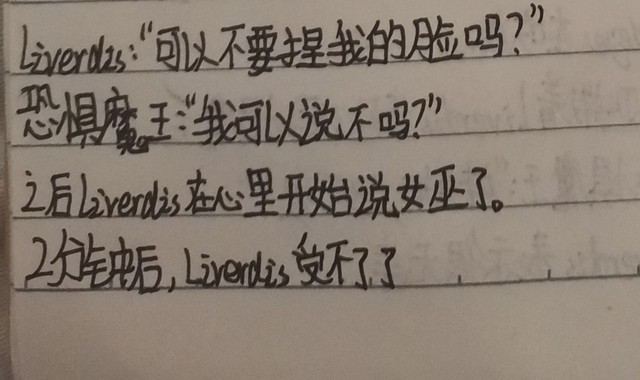 Liverdis:“可以不要捏我的脸吗?”
恐惧魔王:“我可以说不吗?”
之后Liverdis在心里开始说女巫了。
2分钟后,Liverdis受不了了